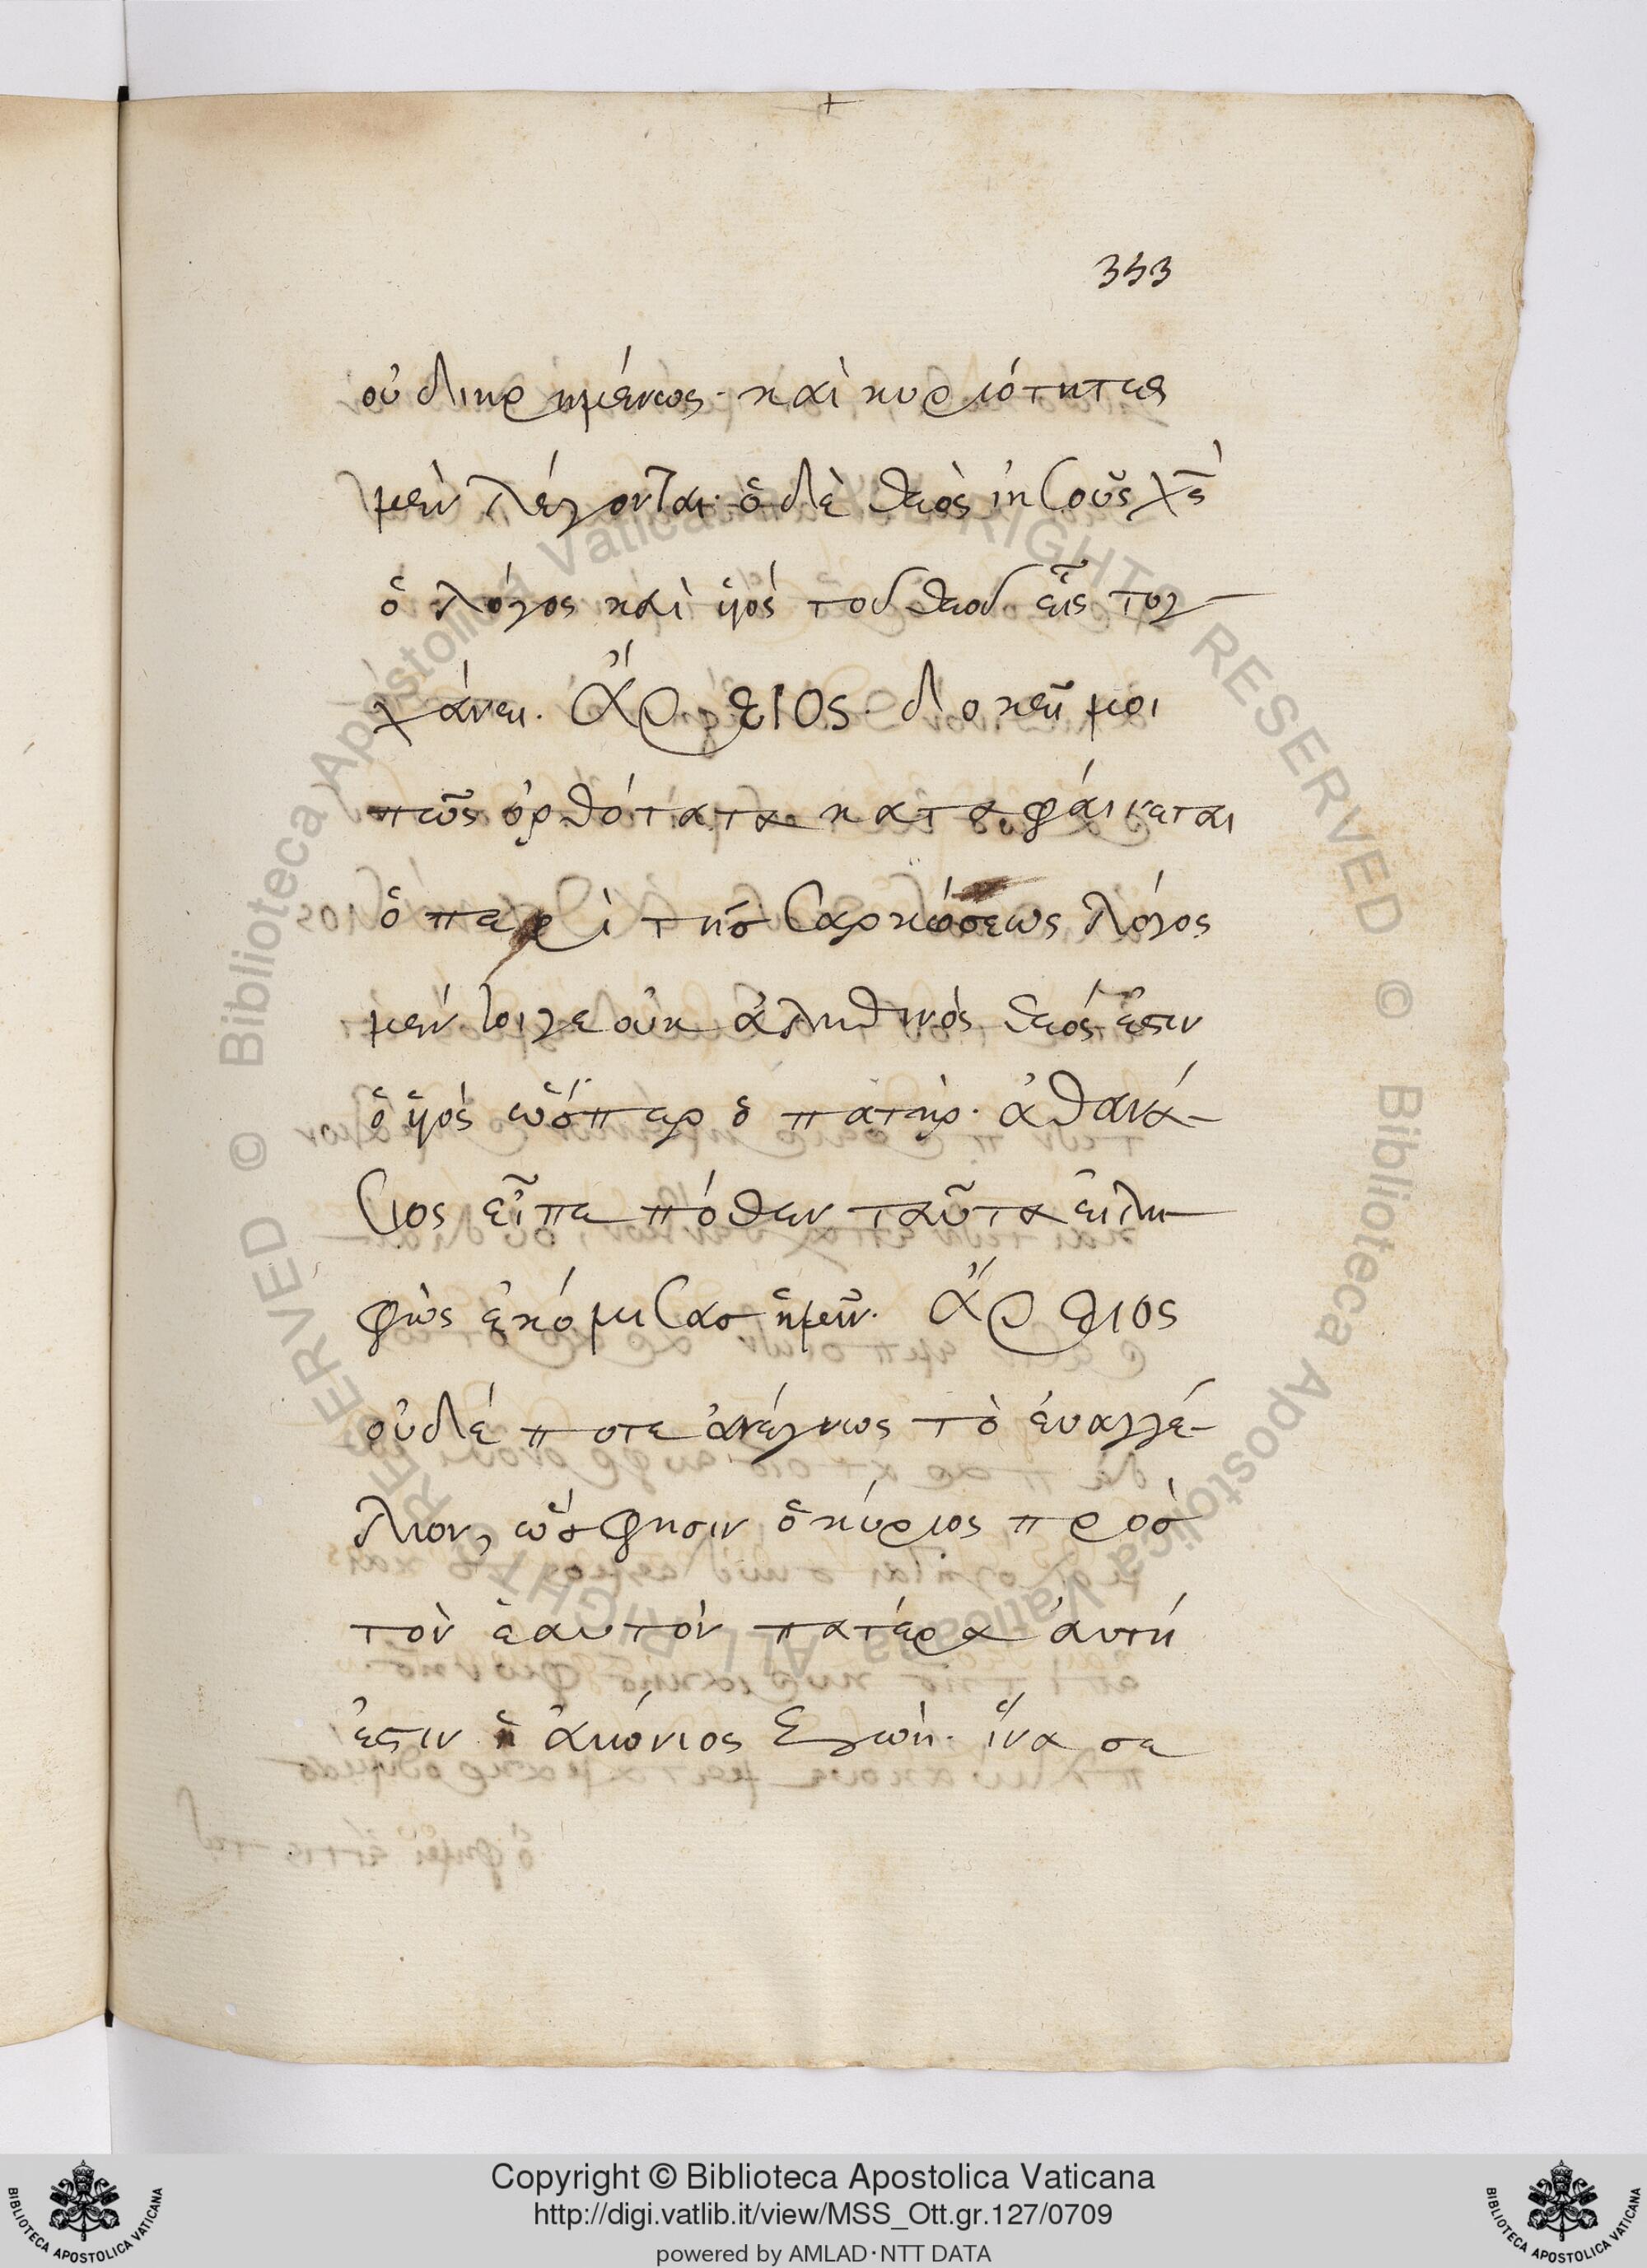 353
οὐ διηρημένως· καὶ κυριότητες
μὲν λέγονται· ὁ δὲ θεὸς ἰησοῦς χς
ὁ λόγος καὶ ὑιὸς τοῦ θεοῦ εἷς τυγ-
χάνει. Ἄρειος· δοκεῖ μοι
πῶς ὀρθότατα καταφάινεται
ὁ περὶ τῆς σαρκώσεως λόγος
μέν τοιγε οὐκ ἀληθινὸς θεός ἐστιν
ὁ ὑιὸς ὥσπερ ὁ πατήρ· ἀθανά-
σιος εἶπε πόθεν ταῦτα εἰλη-
φὼς ἐκόμισας ἡμῖν. Ἄρειος
οὐδέ ποτε ἀνέγνως τὸ ἐυαγγέ-
λιον, ὥς φησιν ὁ κύριος πρὸς
τὸν ἑαυτὸν πατέρα ἁυτή
ἐστιν ἡ ἀιώνιος ζωὴ· ἵνα σε
Copyright © Biblioteca Apostolica Vaticana
http://digi.vatlib.it/view/MSS_Ott.gr.127/0709
powered by AMLAD·NTT DATA
BIBLIOTECA APOSTOLICA VATICANA
BIBLIOTECA APOSTOLICA VATICANA
© Biblioteca Apostolica Vaticana ALL RIGHTS RESERVED © Biblioteca Apostolica Vaticana ALL RIGHTS RESERVED